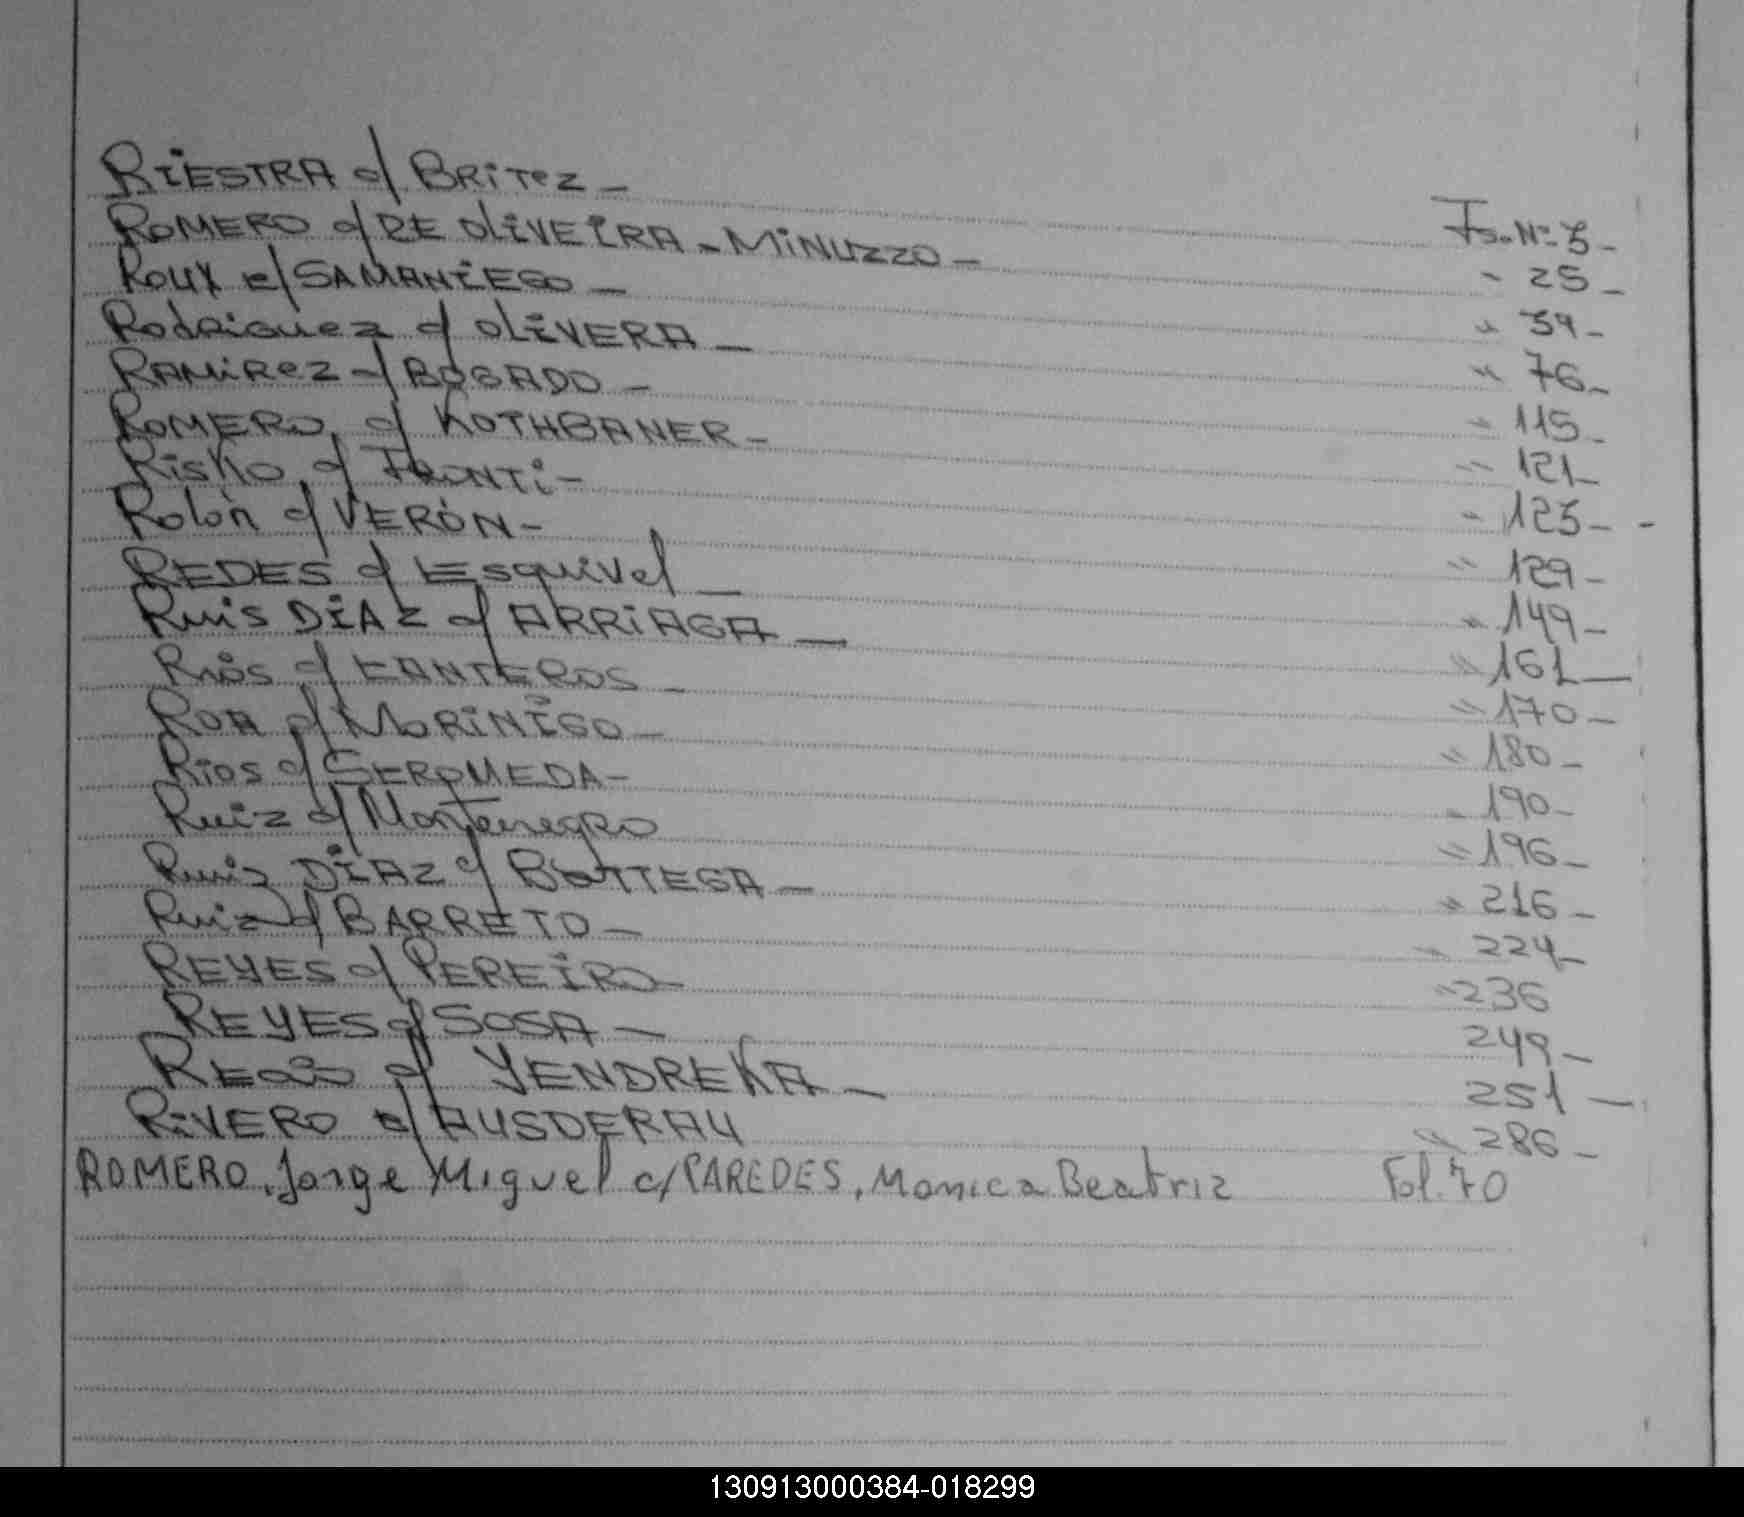 RIESTRA c/ BRITEZ - Fs. Nº 3-
ROMERO c/ DE OLIVEIRA - MINUZZO - " 25-
ROUX c/ SAMANIEGO - " 39-
Rodriguez c/ OLIVERA - " 76-
RAMIREZ c/ BOGADO - " 115-
ROMERO c/ KOTHBANER - " 121-
Risko c/ FRONTI - " 123-
Rolón c/ VERÓN - " 129-
REDES c/ Esquivel - " 149-
Ruis DIAZ c/ ARRIAGA - " 161-
Riós c/ LANTEROS - " 170-
ROA c/ MORINIGO - " 180-
Rios c/ - " 190-
Ruiz c/ Montenegro " 196-
Ruiz DIAZ c/ BOTTEGA - " 216-
Ruiz c/ BARRETO - " 224-
REYES c/ PEREIRO - " 236
REYES c/ SOSA - 249-
c/ YENDREKA - 251-
RIVERO c/ AUSDERAU " 286-
ROMERO, Jorge Miguel c/ PAREDES, Monica Beatriz Fol. 70
130913000384-018299